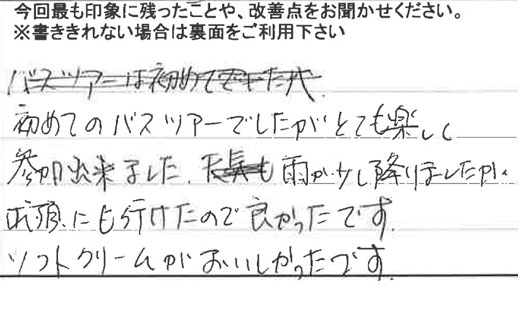 今回最も印象に残ったことや、改善点をお聞かせください。
※書ききれない場合は裏面をご利用下さい
バスツアーは初めてでしたが
初めてのバスツアーでしたがとても楽しく
参加出来ました。天気も雨が少し降りましたが、
にも行けたので良かったです。
ソフトクリームがおいしかったです。